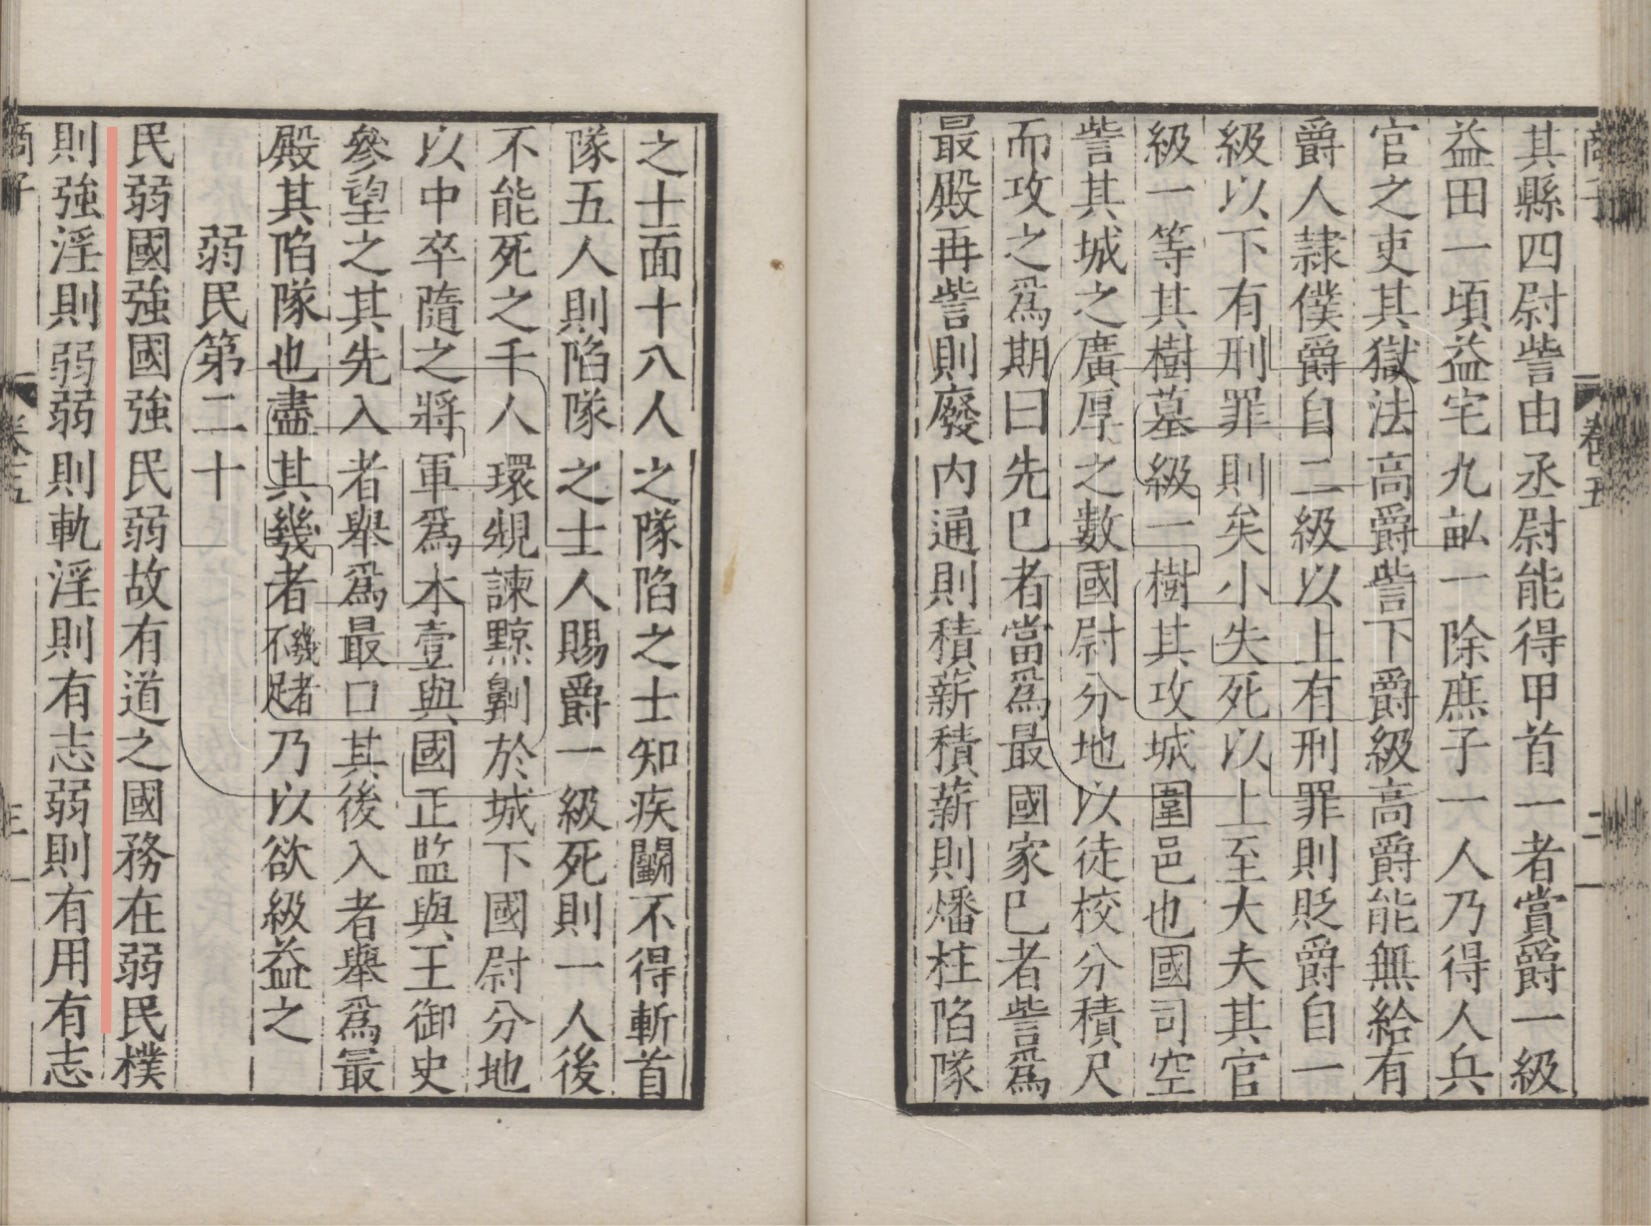 其縣四尉訾由丞尉能得甲首一者賞爵一級
益田一頃益宅九畝一除庶子一人乃得人兵
官之吏其獄法高爵訾下爵級高爵能無給有
爵人隷僕爵自二級以上有刑罪則貶爵自一
級以下有刑罪則矣小失死以上至大夫其官
級一等其樹墓級一樹其攻城圍邑也國司空
訾其城之廣厚之數國尉分地以徒校分積尺
而攻之爲期曰先巳者當爲最國家巳者訾爲
最殿再訾則廢内通則積薪積薪則燔柱陷隊
之士面十八人之隊陷之士知疾鬭不得斬首
隊五人則陷隊之士人賜爵一級死則一人後
不能死之千人環䂓諫黥劓於城下國尉分地
以中卒隨之將軍爲木壹與國正監與王御史
參望之其先入者舉爲最口其後入者舉爲最
殿其陷隊也盡其幾者幾者不足乃以欲級益之
弱民第二十
民弱國強國強民弱故有道之國務在弱民樸
則強淫則弱弱則軌淫則有志弱則有用有志
商子 卷五 二
商子 卷五 三